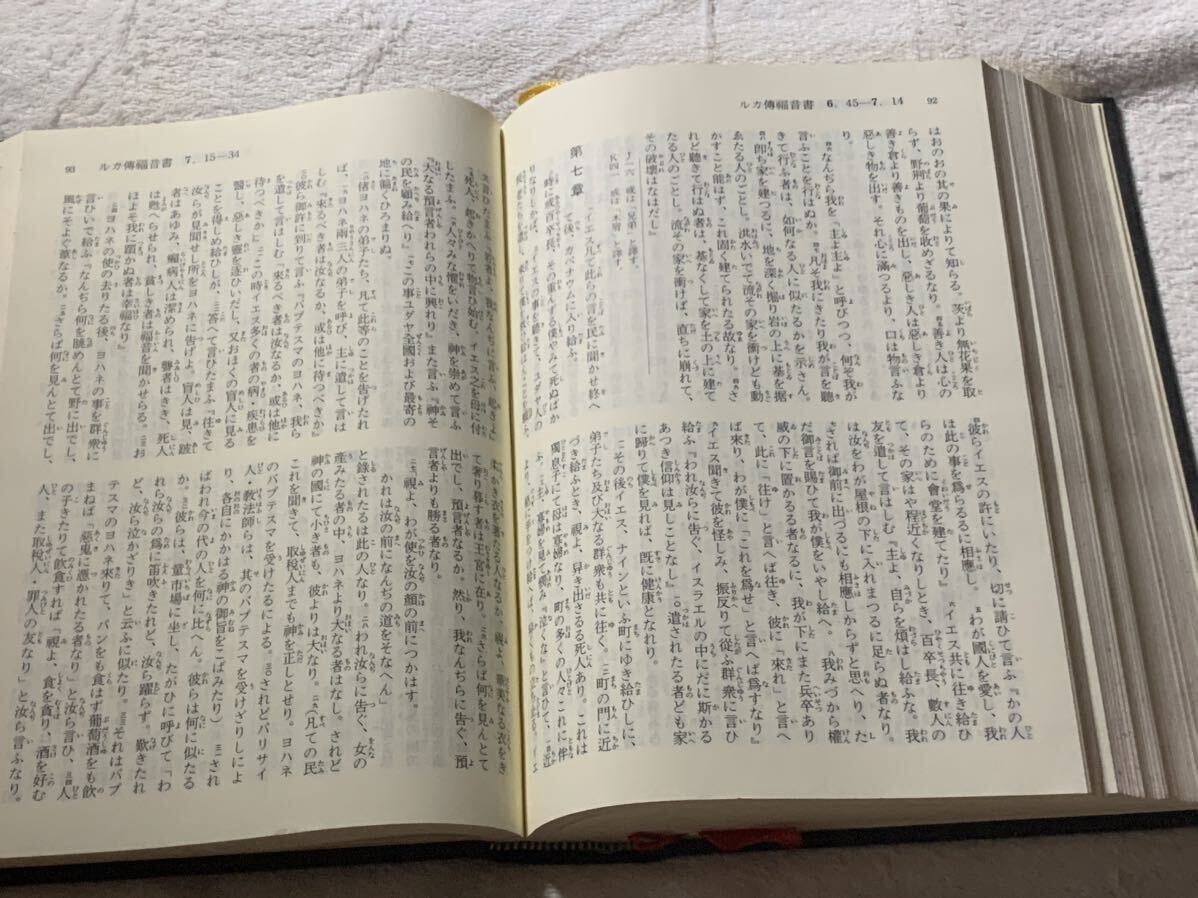 ルカ傳福音書 6．45―7．14 92
はおのおの其の果によりて知らる。茨より無花果を取
らず、野荊より葡萄を收めざるなり。善き人は心の
善き倉より善きものを出し、惡しき人は惡しき倉より
惡しき物を出す。それ心に滿つるより、口は物言ふな
り。
なんぢら我を『主よ主よ』と呼びつつ、何ぞ我が
言ふことを行はぬか。凡そ我にきたり我が言を聽
きて行ふ者は、如何なる人に似たるかを示さん。
即ち家を建つるに、地を深く掘り岩の上に基を据
ゑたる人のごとし。洪水いでて流その家を衝けども動
かすこと能はず、これ固く建てられたる故なり。
れど聽きて行はぬ者は、基なくして家を土の上に建て
たる人のごとし。流その家を衝けば、直ちに崩れて、
その破壞はなはだし』
J 一六 或は「兄弟」と譯す。
K 四一 或は「木屑」と譯す。
第七章
イエス凡て此らの言を民に聞かせ終へ
て後、カペナウムに入り給ふ。
時に或百卒長、その重んずる僕やみて死ぬばか
りなりしかば、イエスの事を聽きて、ユダヤ人の
彼らイエスの許にいたり、切に請ひて言ふ『かの人
は此の事を爲らるるに相應し。わが國人を愛し、我
らのために會堂を建てたり』イエス共に往き給ひ
て、その家はや程近くなりしとき、百卒長、數人の
友を遣して言はしむ『主よ、自らを煩はし給ふな。我
は汝をわが屋根の下に入れまつるに足らぬ者なり。
されば御前に出づるにも相應しからずと思へり、た
だ御言を賜ひて我が僕をいやし給へ。我みづから權
威の下に置かるる者なるに、我が下にまた兵卒あり
て、此に「往け」と言へば往き、彼に「來れ」と言へ
ば來り、わが僕に「これを爲せ」と言へば爲すなり』
イエス聞きて彼を怪しみ、振反りて從ふ群衆に言ひ
給ふ『われ汝らに告ぐ、イスラエルの中にだに斯かる
あつき信仰は見しことなし』遣されたる者ども家
に歸りて僕を見れば、既に健康となれり。
その後イエス、ナインといふ町にゆき給ひしに、
弟子たち及び大なる群衆も共に往く。町の門に近
づき給ふとき、視よ、舁き出さるる死人あり。これは
獨息子にて母は寡婦なり、町の多くの人々これに伴
ふ。主、寡婦を見て憫み『泣くな』と言ひて、近
ルカ傳福音書 7．15―34 93
死人、起きかへりて物言ひ始む。イエス之を母に付
したまふ。人々みな懼をいだき、神を崇めて言ふ
『大なる預言者われらの中に興れり』また言ふ『神そ
の民を顧み給へり』この事ユダヤ全國および最寄の
地に徧くひろまりぬ。
偖ヨハネの弟子たち、凡て此等のことを告げたれ
ば、ヨハネ兩三人の弟子を呼び、主に遣して言は
しむ『來るべき者は汝なるか、或は他に待つべきか』
彼ら御許に到りて言ふ『バプテスマのヨハネ、我ら
を遣して言はしむ「來るべき者は汝なるか、或は他に
待つべきか」』この時イエス多くの者の病・疾患を
醫し、惡しき靈を逐ひいだし、又おほくの盲人に見る
ことを得しめ給ひしが、答へて言ひたまふ『往きて
汝らが見聞せし所をヨハネに告げよ。盲人は見、跛
者はあゆみ、癩病人は潔められ、聾者はきき、死人
は甦へらせられ、貧しき者は福音を聞かせらる。お
ほよそ我に躓かぬ者は幸福なり』
ヨハネの使の去りたる後、ヨハネの事を群衆に
言ひいで給ふ『なんぢら何を眺めんとて野に出でし、
風にそよぐ葦なるか。さらば何を見んとて出でし、
はらかき衣を著たる人なるか。視よ、華美なる衣をき
て奢り暮す者は王宮に在り。さらば何を見んとて
出でし、預言者なるか。然り、我なんぢらに告ぐ、預
言者よりも勝る者なり。
「視よ、わが使を汝の顏の前につかはす。
かれは汝の前になんぢの道をそなへん」
と録されたるは此の人なり。われ汝らに告ぐ、女の
産みたる者の中、ヨハネより大なる者はなし。されど
神の國にて小き者も、彼よりは大なり。（凡ての民
これを聞きて、取税人までも神を正しとせり。ヨハネ
のバプテスマを受けたるによる。されどパリサイ
人・教法師らは、其のバプテスマを受けざりしによ
り、各自にかかはる神の御旨をこばみたり）され
ばわれ今の代の人を何に比へん。彼らは何に似たる
か。彼らは、童市場に坐し、たがひに呼びて「わ
れら汝らの爲に笛吹きたれど、汝ら躍らず。歎きたれ
ど、汝ら泣かざりき」と云ふに似たり。それはバプ
テスマのヨハネ來りて、パンをも食はず葡萄酒をも飮
まねば「惡鬼に憑かれたる者なり」と汝ら言ひ、人
の子きたりて飮食すれば「視よ、食を貪り、酒を好む
人、また取税人・罪人の友なり」と汝ら言ふなり。